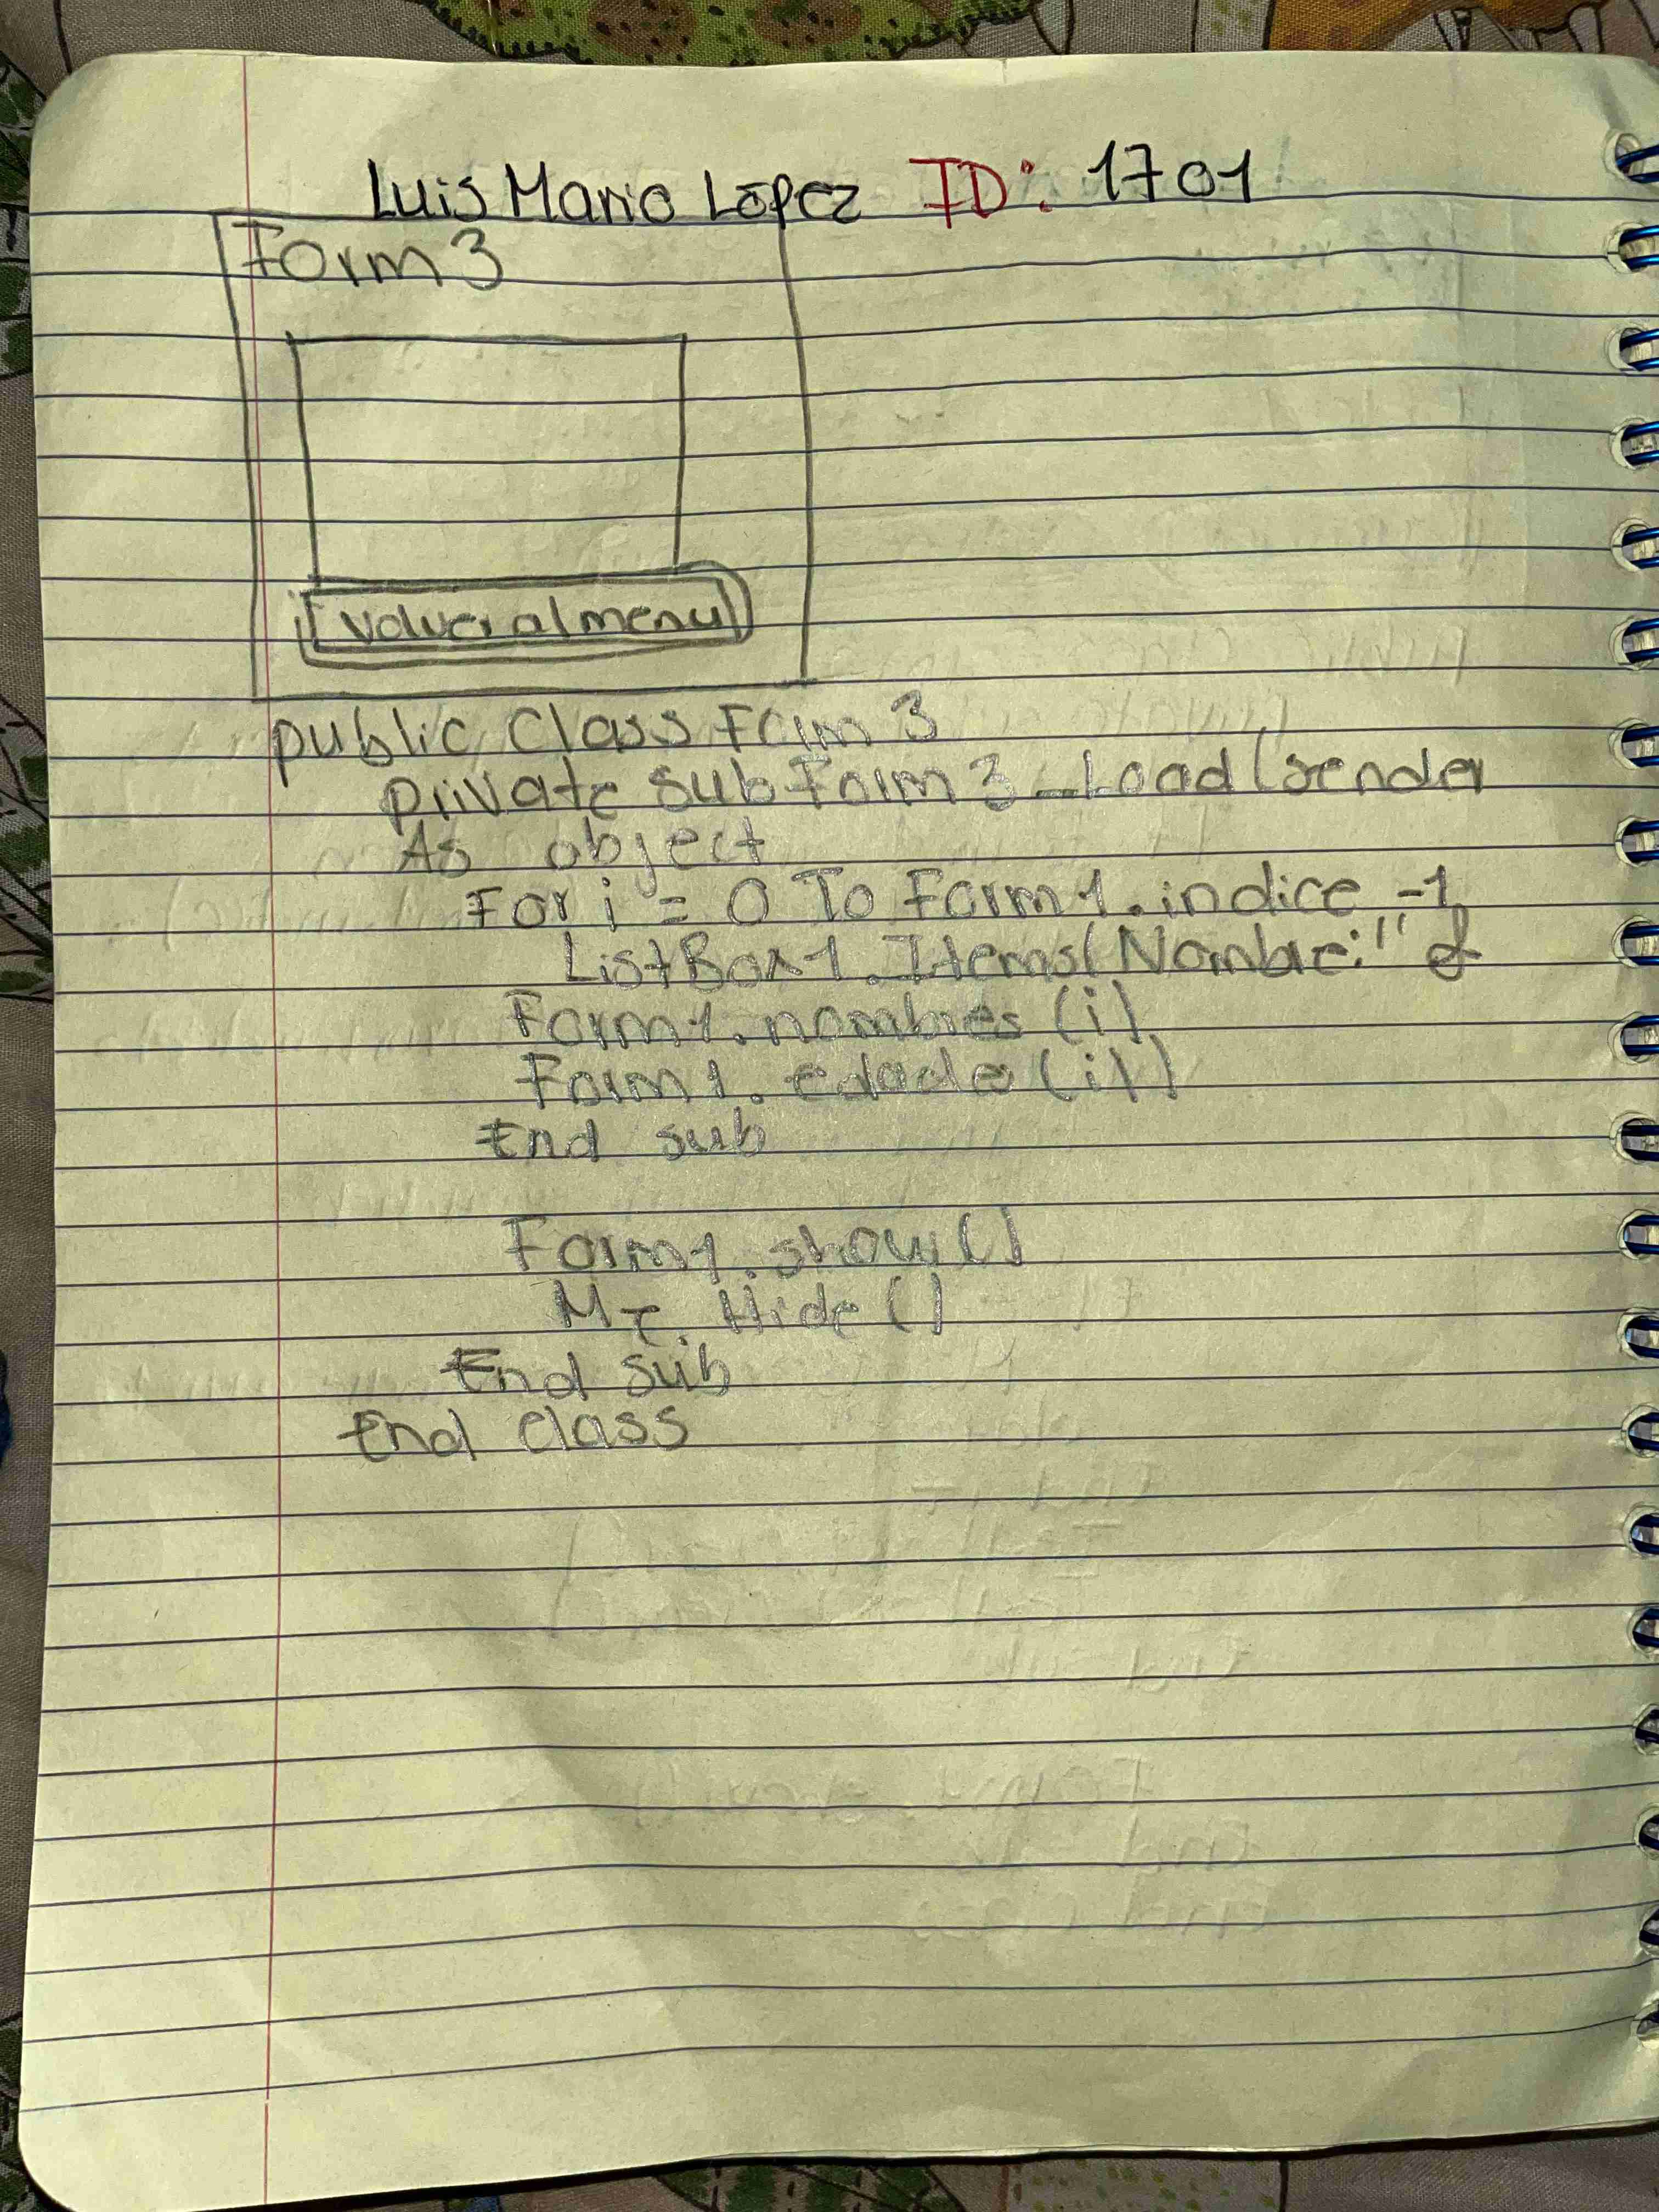 Luis Mario López ID: 1701
Form 3
volver al menu
public class Form 3
private sub Form 3_Load(sender
As object
For i = 0 To Form1.indice -1
ListBox1.Items(Nombre:" &
Form1.nombres (i)
Form1.edade (i))
End sub
Form1.show()
Me.Hide()
End sub
End class